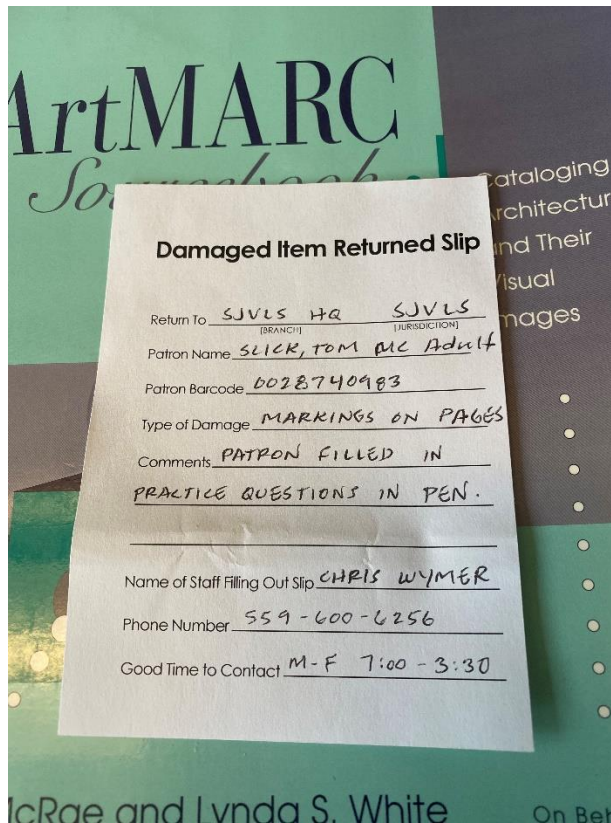 ArtMARC
Cataloging
Architectur
and Their
Visual
Images
Damaged Item Returned Slip
Return To SJVLS HQ SJVLS
[BRANCH] [JURISDICTION]
Patron Name SLICK, TOM MC Adult
Patron Barcode 0028740983
Type of Damage MARKINGS ON PAGES
Comments PATRON FILLED IN
PRACTICE QUESTIONS IN PEN.
Name of Staff Filling Out Slip CHRIS WYMER
Phone Number 559-600-6256
Good Time to Contact M-F 7:00 - 3:30
cRae and Lynda S. White
On Bet